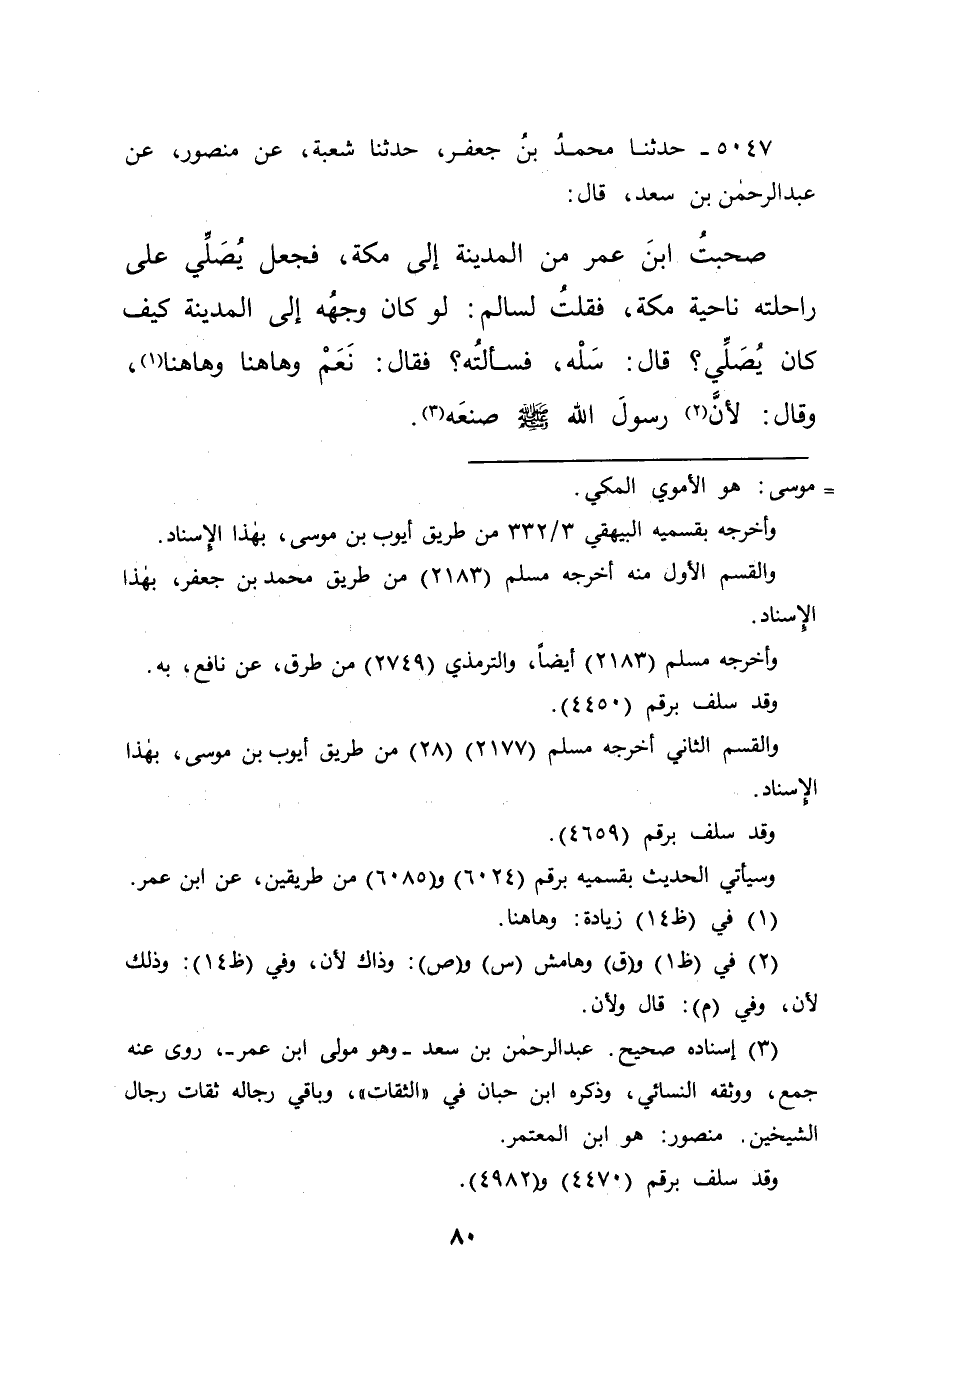 ٥٠٤٧ ـ حدثنـا محمـدُ بنُ جعفـر، حدثنا شعبة، عن منصور، عن
عبدالرحمٰن بن سعد، قال:
صحبتُ ابنَ عمر من المدينة إلى مكة، فجعل يُصَلِّي على
راحلته ناحية مكة، فقلتُ لسالم: لو كان وجهُه إلى المدينة كيف
كان يُصَلِّي؟ قال: سَلْه، فسـألتُه؟ فقال: نَعَمْ وهاهنا وهاهنا(١)،
وقال: لأنَّ(٢) رسولَ الله ﷺ صنعَه(٣).
= موسى: هو الأموي المكي.
وأخرجه بقسميه البيهقي ٣٣٢/٣ من طريق أيوب بن موسى، بهٰذا الإسناد.
والقسم الأول منه أخرجه مسلم (٢١٨٣) من طريق محمد بن جعفر، بهٰذا
الإسناد.
وأخرجه مسلم (٢١٨٣) أيضاً، والترمذي (٢٧٤٩) من طرق، عن نافع، به.
وقد سلف برقم (٤٤٥٠).
والقسم الثاني أخرجه مسلم (٢١٧٧) (٢٨) من طريق أيوب بن موسى، بهٰذا
الإسناد.
وقد سلف برقم (٤٦٥٩).
وسيأتي الحديث بقسميه برقم (٦٠٢٤) و(٦٠٨٥) من طريقين، عن ابن عمر.
(١) في (ظ١٤) زيادة: وهاهنا.
(٢) في (ظ١) و(ق) وهامش (س) و(ص): وذاك لأن، وفي (ظ١٤): وذلك
لأن، وفي (م): قال ولأن.
(٣) إسناده صحيح. عبدالرحمٰن بن سعد ـ وهو مولى ابن عمر ـ، روى عنه
جمع، ووثقه النسائي، وذكره ابن حبان في «الثقات»، وباقي رجاله ثقات رجال
الشيخين. منصور: هو ابن المعتمر.
وقد سلف برقم (٤٤٧٠) و(٤٩٨٢).
٨٠